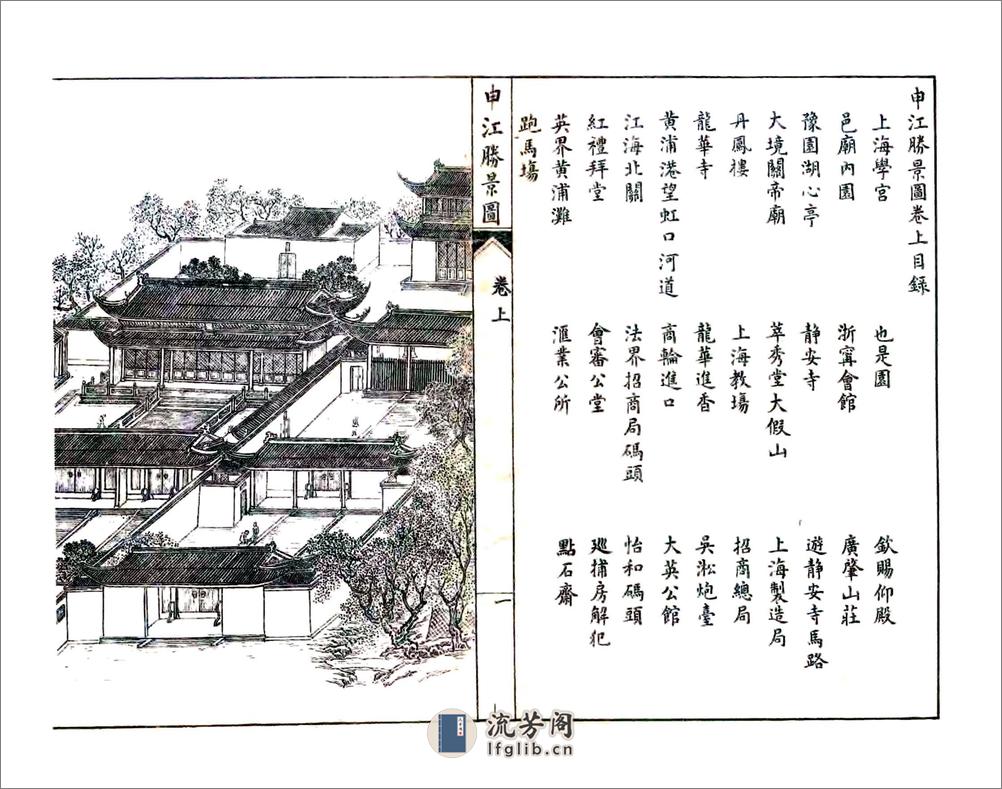 申江勝景圖卷上目錄
上海學宮 也是園 欽賜仰殿
邑廟內園 浙甯會館 廣肇山莊
豫園湖心亭 静安寺 遊静安寺馬路
大境關帝廟 萃秀堂大假山 上海製造局
丹鳳樓 上海教塲 招商總局
龍華寺 龍華進香 吳淞炮臺
黃浦港望虹口河道 商輪進口 大英公館
江海北關 法界招商局碼頭 怡和碼頭
紅禮拜堂 會審公堂 廵捕房解犯
英界黃浦灘 滙業公所 點石齋
跑馬塲
申江勝景圖
卷上
一
流芳阁
lfglib.cn